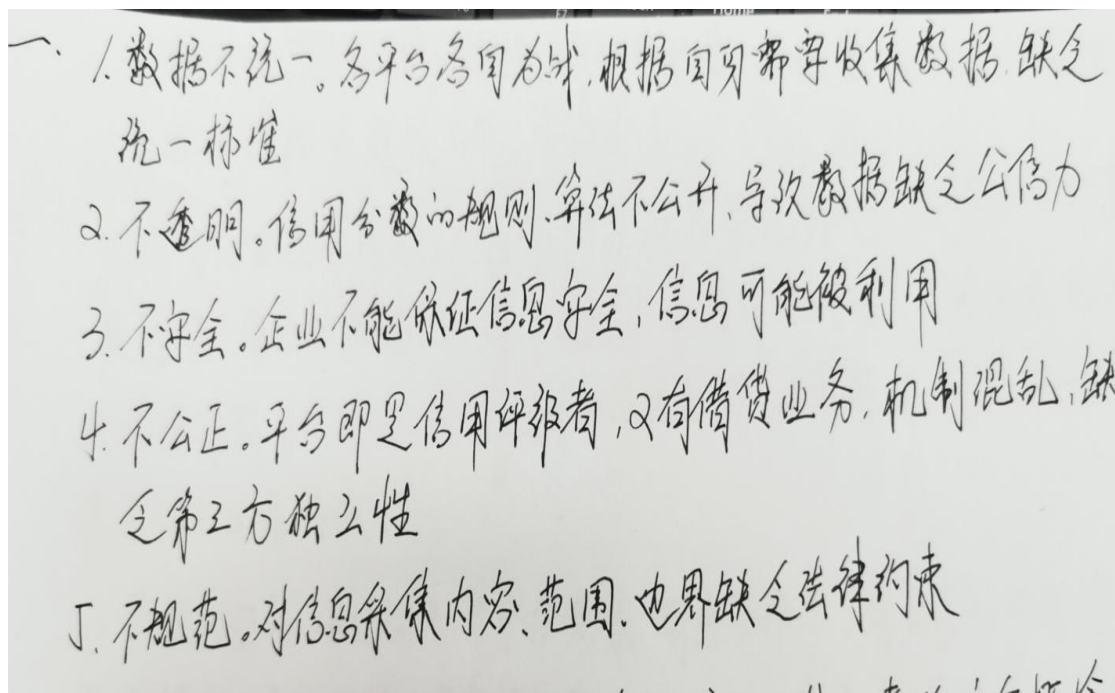 一、1.数据不统一。各平台各自为战,根据自身需要收集数据,缺乏
统一标准
2.不透明。信用分数的规则、算法不公开,导致数据缺乏公信力
3.不安全。企业不能保证信息安全,信息可能被利用
4.不公正。平台即是信用评级者,又有借贷业务,机制混乱,缺
乏第三方独立性
5.不规范。对信息采集内容、范围、边界缺乏法律约束